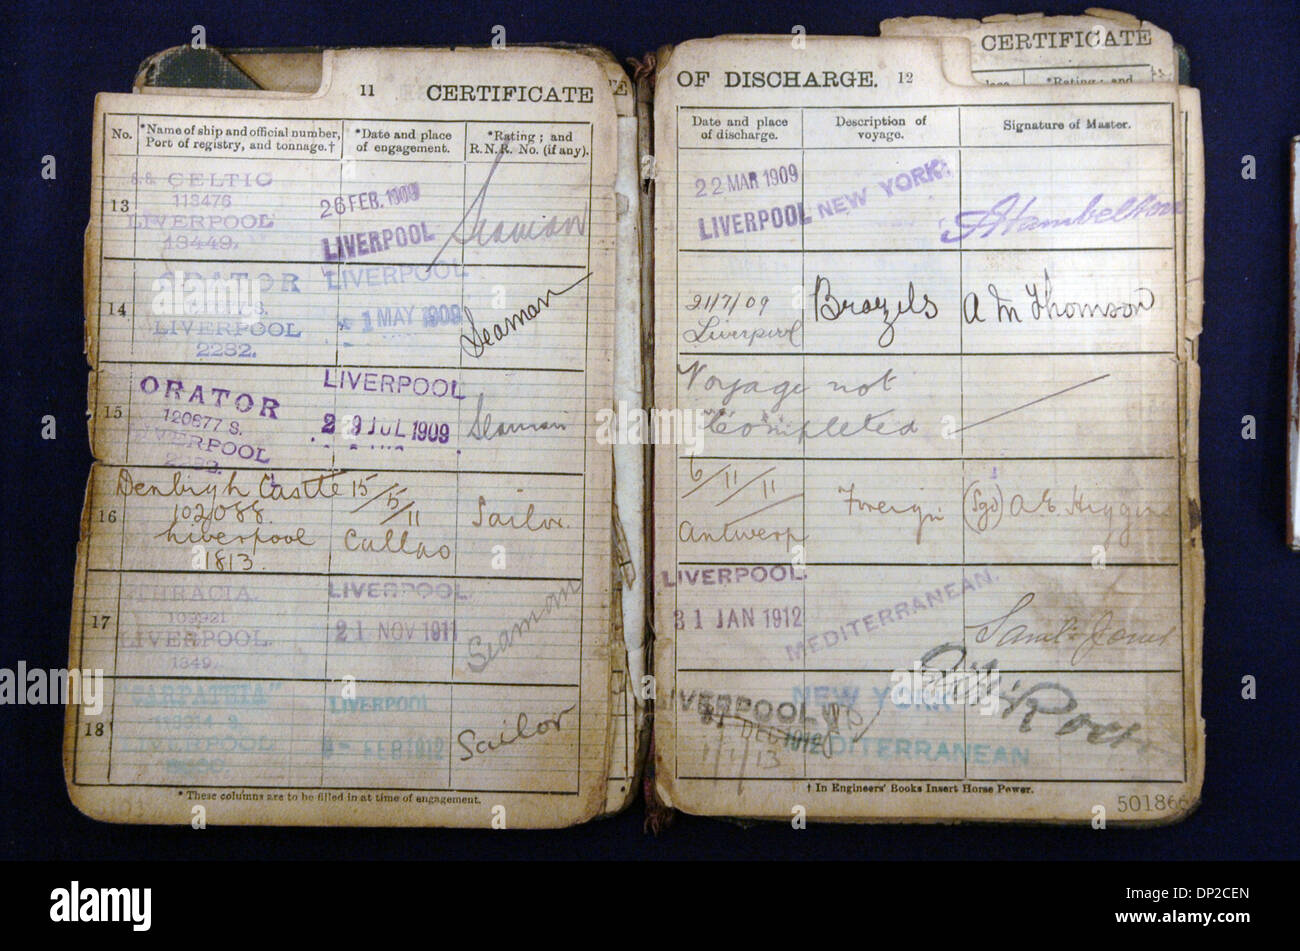 11 CERTIFICATE
No.
*Name of ship and official number, Port of registry, and tonnage.†
*Date and place of engagement.
*Rating; and R.N.R. No. (if any).
13
S.S. CELTIC
113476
LIVERPOOL
13449.
26 FEB. 1909
LIVERPOOL
Seaman
14
ORATOR
LIVERPOOL
2282.
LIVERPOOL
1 MAY 1909
Seaman
15
ORATOR
120677 S.
LIVERPOOL
2282.
LIVERPOOL
29 JUL 1909
Seaman
16
Denbigh Castle
102088
Liverpool
1813.
15/5/11
Callao
Sailor
17
THRACIA.
109921
LIVERPOOL.
1349.
LIVERPOOL
21 NOV 1911
Seaman
18
"CARPATHIA"
LIVERPOOL
LIVERPOOL
FEB 1912
Sailor
*These columns are to be filled in at time of engagement.
OF DISCHARGE. 12
Date and place of discharge.
Description of voyage.
Signature of Master.
22 MAR 1909
LIVERPOOL
NEW YORK.
21/7/09
Liverpool
Brazils
A M Thomson
Voyage not
Completed
6/11/11
Antwerp
Foreign
(Sgd) A E Higgins
LIVERPOOL.
31 JAN 1912
MEDITERRANEAN.
Saml. Jones
LIVERPOOL
DEC 1912
1/1/13
NEW YORK
MEDITERRANEAN
† In Engineers' Books Insert Horse Power.
501866
CERTIFICATE
*Rating; and
alamy
Image ID: DP2CEN
www.alamy.com